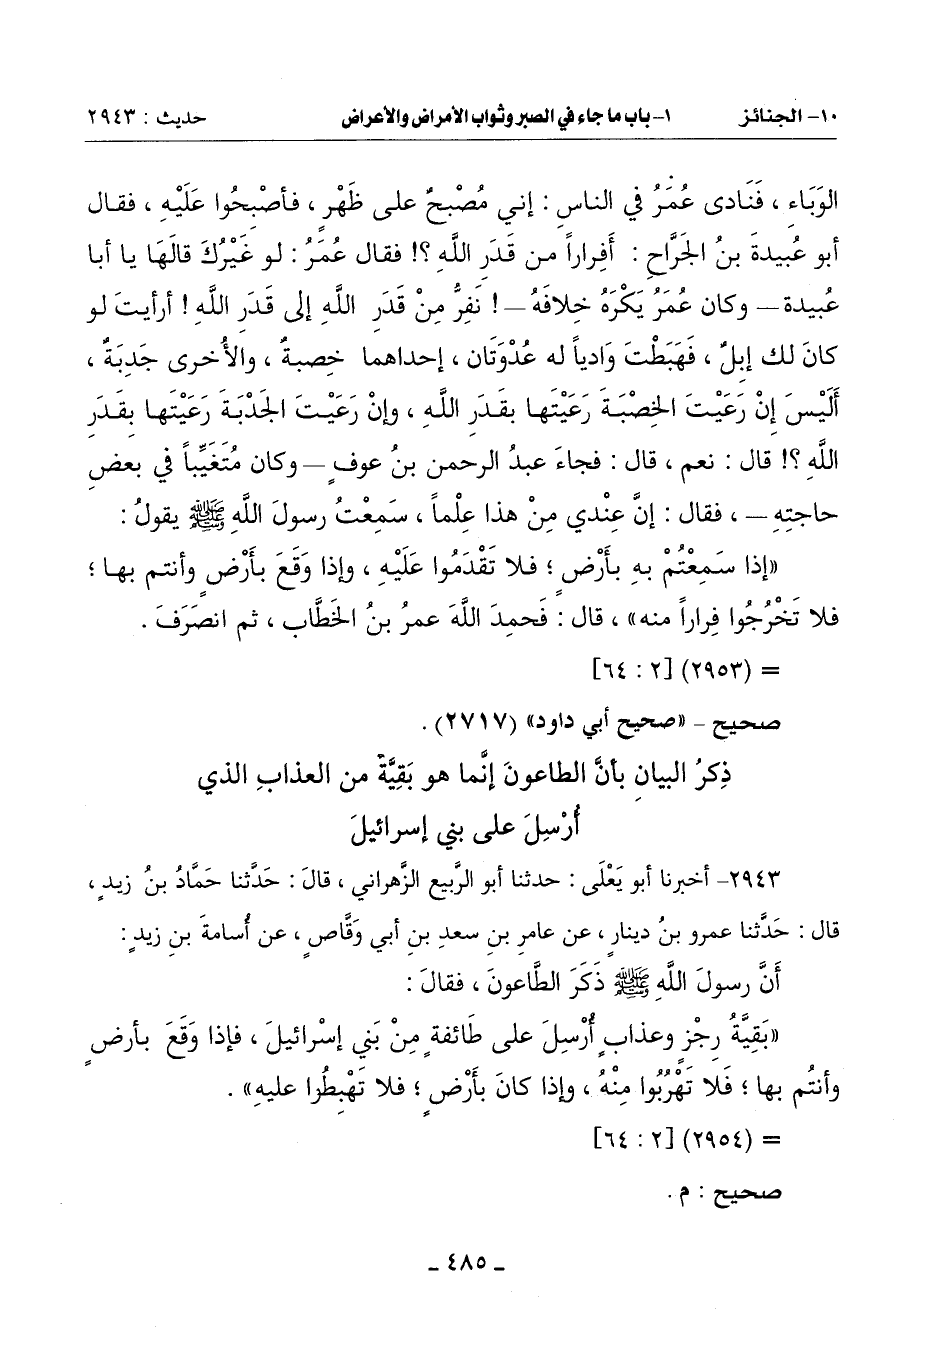 ١٠- الجنائز ١- باب ما جاء في الصبر وثواب الأمراض والأعراض حديث : ٢٩٤٣
الوَبَاء ، فَنَادى عُمَرُ في الناس : إني مُصْبحٌ على ظَهْرٍ ، فأصْبِحُوا عَلَيْهِ ، فقال
أبو عُبيدةَ بنُ الجَرَّاحِ : أَفِراراً من قَدَرِ اللَّهِ ؟! فقال عُمَرُ : لو غَيْرُكَ قالَهَا يا أبا
عُبيدة — وكان عُمَرُ يَكْرَهُ خلافَهُ — ! نَفِرُّ مِنْ قَدَرِ اللَّهِ إلى قَدَرِ اللَّهِ ! أرأيتَ لو
كانَ لك إبلٌ ، فَهَبَطْتَ وَادياً له عُدْوَتَان ، إحداهما خصبةٌ ، والأُخرى جَدبَةٌ ،
أَلَيْسَ إنْ رَعَيْتَ الخصْبَةَ رَعَيْتَها بقَدَرِ اللَّهِ ، وإنْ رَعَيْتَ الجَدْبَةَ رَعَيْتَها بقَدَرِ
اللَّهِ ؟! قال : نعم ، قال : فجاءَ عبدُ الرحمن بنُ عوفٍ — وكان مُتَغَيِّباً في بعضِ
حاجتِهِ — ، فقال : إنَّ عِنْدي مِنْ هذا علْماً ، سَمِعْتُ رسولَ اللَّهِ ﷺ يقولُ :
«إذا سَمِعْتُمْ بهِ بأَرْضٍ ؛ فلا تَقْدَمُوا عَلَيْهِ ، وإذا وَقَعَ بأَرْضٍ وأنتم بها ؛
فلا تَخْرُجُوا فِراراً منه» ، قال : فَحمِدَ اللَّهَ عمرُ بنُ الخَطَّابِ ، ثم انصَرَفَ .
= (٢٩٥٣) [٢ : ٦٤]
صحيح - «صحيح أبي داود» (٢٧١٧) .
ذِكرُ البيانِ بأنَّ الطاعونَ إنَّما هو بَقِيَّةٌ من العذابِ الذي
أُرْسِلَ على بني إسرائيلَ
٢٩٤٣- أخبرنا أبو يَعْلَى : حدثنا أبو الرَّبيع الزَّهراني ، قالَ : حَدَّثنا حَمَّادُ بنُ زيدٍ ،
قال : حَدَّثنا عمرو بنُ دينارٍ ، عن عامرِ بنِ سعدِ بنِ أبي وَقَّاصٍ ، عن أُسامةَ بنِ زيدٍ :
أنَّ رسولَ اللَّهِ ﷺ ذَكَرَ الطَّاعونَ ، فقالَ :
«بَقِيَّةُ رِجْزٍ وعذابٍ أُرْسِلَ على طَائفةٍ مِنْ بَني إسْرائيلَ ، فإذا وَقَعَ بأرضٍ
وأنتُم بها ؛ فَلا تَهْرُبُوا مِنْهُ ، وإذا كانَ بأَرْضٍ ؛ فلا تَهْبِطُوا عليهِ» .
= (٢٩٥٤) [٢ : ٦٤]
صحيح : م .
ـ ٤٨٥ ـ